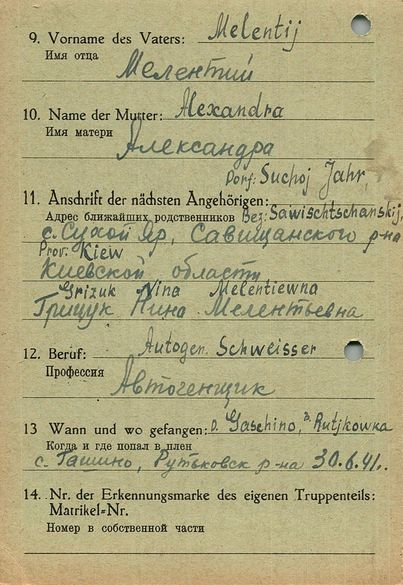 9. Vorname des Vaters: Melentij
Имя отца
Мелентий
10. Name der Mutter: Alexandra
Имя матери
Александра
Dorf. Suchoj Jahr,
11. Anschrift der nächsten Angehörigen:
Адрес ближайших родственников Bez. Sawischtschanskij,
с. Сухой Яр, Савищанского р-на
Prov. Kiew
Киевской области
Grizuk Nina Melentiewna
Грицук Нина Мелентьевна
12. Beruf: Autogen. Schweisser
Профессия
Автогенщик
13 Wann und wo gefangen: D. Gaschino, B. Rutjkowka
Когда и где попал в плен
с. Гашино, Рутьковск р-на 30.6.41.
14. Nr. der Erkennungsmarke des eigenen Truppenteils:
Matrikel=Nr.
Номер в собственной части